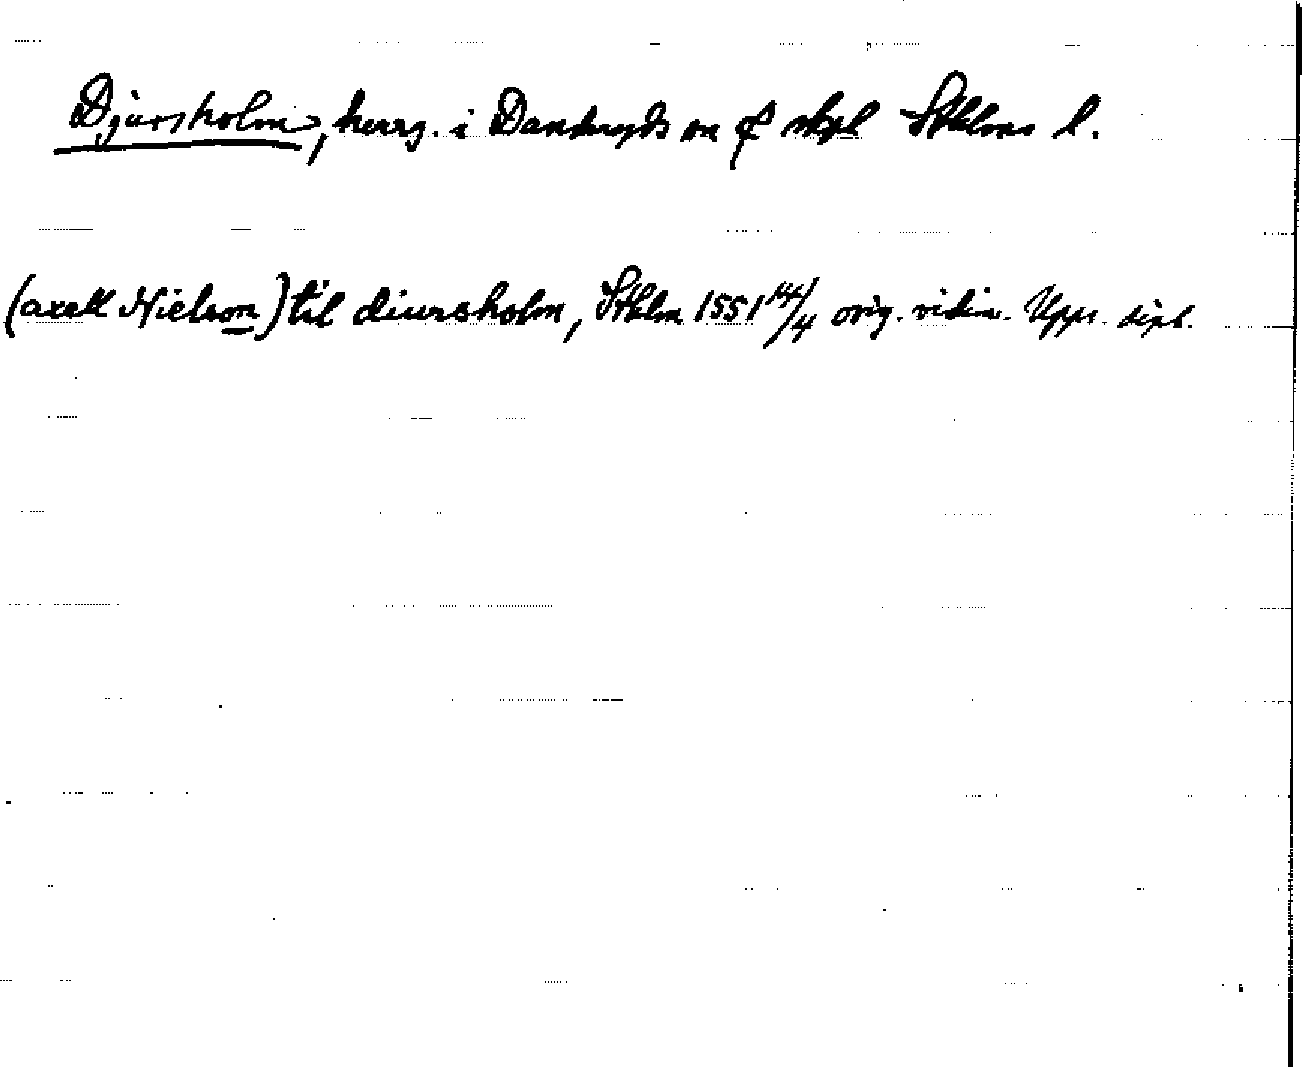 Djursholm, herrg. i Danderyds sn o skpl Sthlms l.
(axell Nielson) til diursholm, Sthlm 1551 14/4 orig. vidim. Upps. dipl.